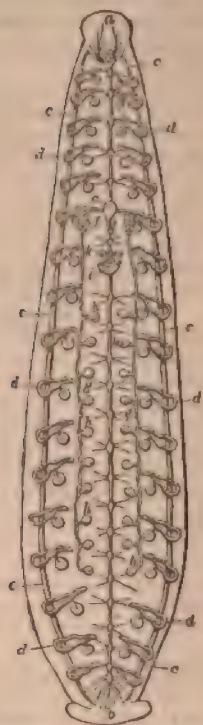 a
c
c
d
d
c
c
d
d
c
d
d
c
b